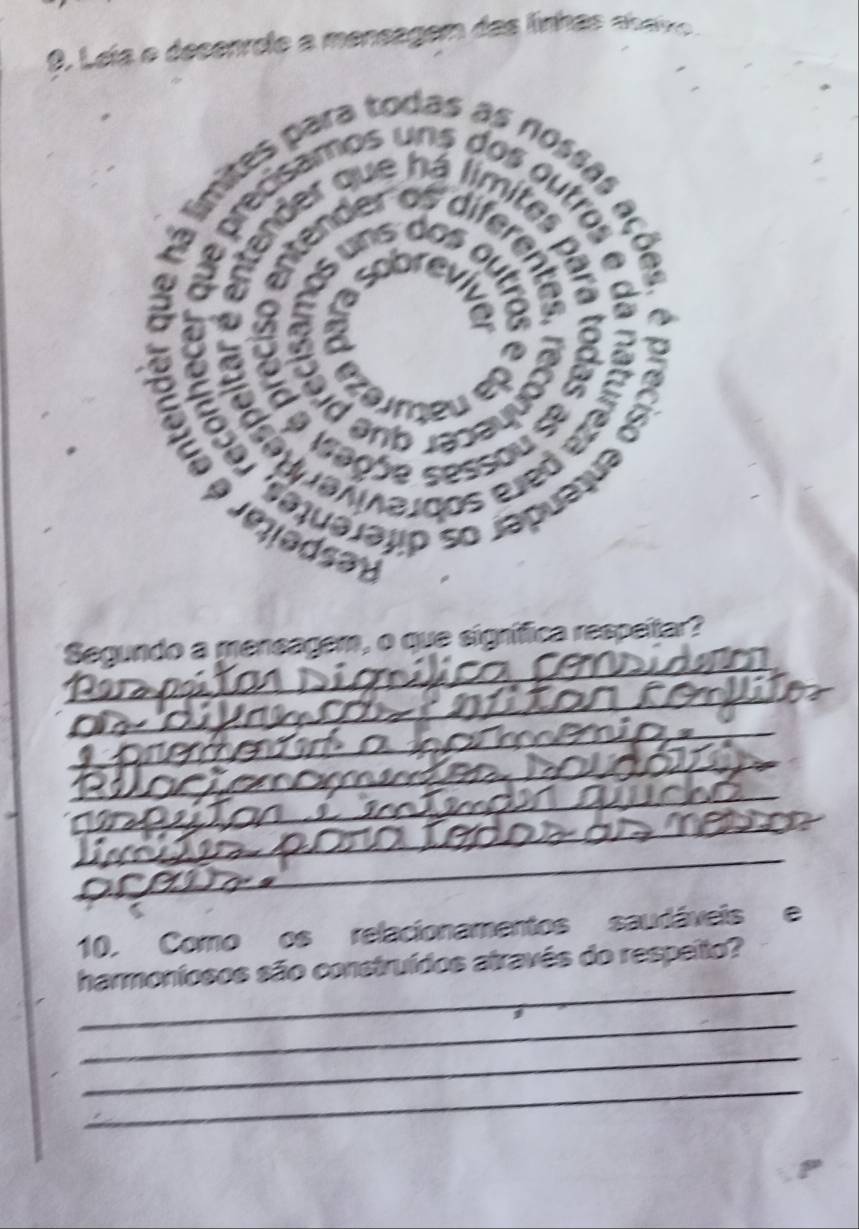 9. Leia e desenrole a mensagem das linhas abaixo.
Respeitar é entender que há limites para todas as nossas ações, é preciso entender os diferentes, reconhecer que precisamos uns dos outros e da natureza para sobreviver. Respeitar é entender que há limites para todas as nossas ações! é preciso entender os diferentes, reconhecer que precisamos uns dos outros e da natureza para sobreviver
Segundo a mensagem, o que significa respeitar?
significa
conflitos
a harmonia.
respeitar e entender que há
limites para todas as nossas
10. Como os relacionamentos saudáveis e
harmoniosos são construídos através do respeito?